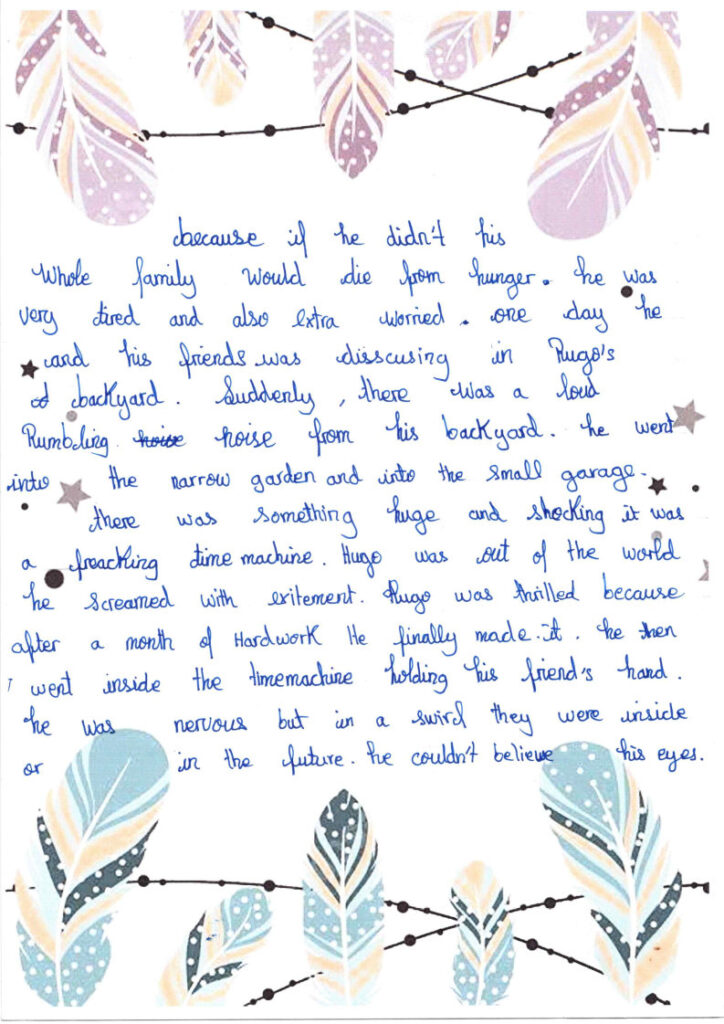 because if he didn't his
Whole family would die from hunger. he was
very tired and also extra worried. one day he
and his friends was disscusing in Hugo's
backyard. Suddenly, there was a loud
Rumbling noise noise from his backyard. he went
into the narrow garden and into the small garage.
there was something huge and shocking it was
a freacking time machine. Hugo was out of the world
he screamed with exitement. Hugo was thrilled because
after a month of Hardwork He finally made it. he then
went inside the timemachine holding his friend's hand.
he was nervous but in a swirl they were inside
or in the future. he couldn't believe his eyes.